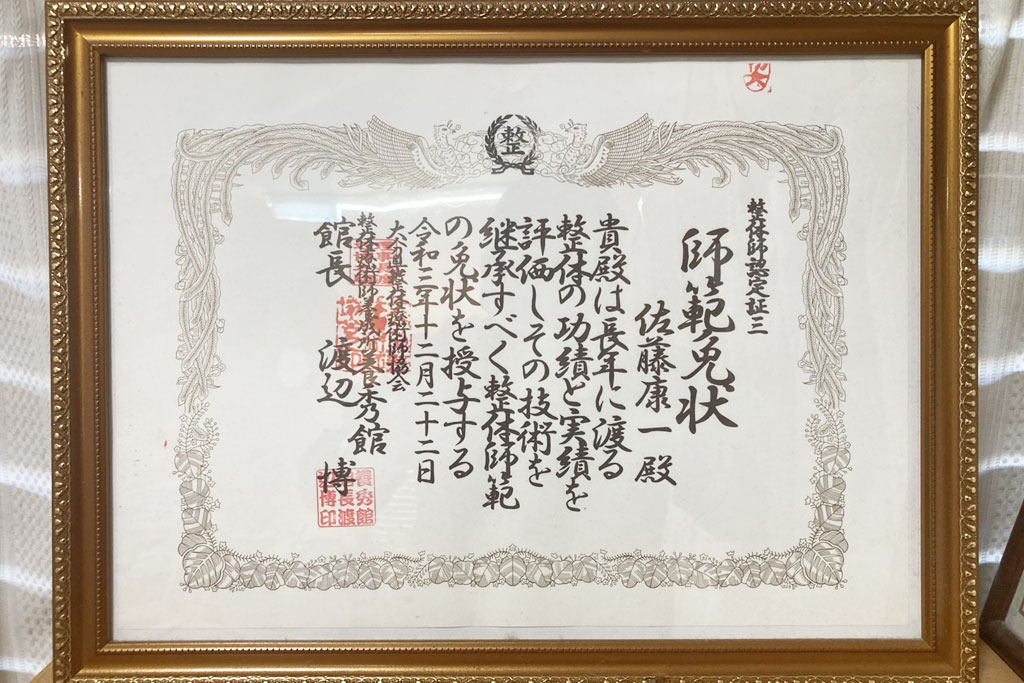 整
整体師認定証三
師範免状
佐藤康一 殿
貴殿は長年に渡る
整体の功績と実績を
評価しその技術を
継承すべく整体師範
の免状を授与する
令和三年十二月二十二日
整体療術師協会
整体療術師養成所
秀館
館長 渡辺 博
秀館
館長渡
博印